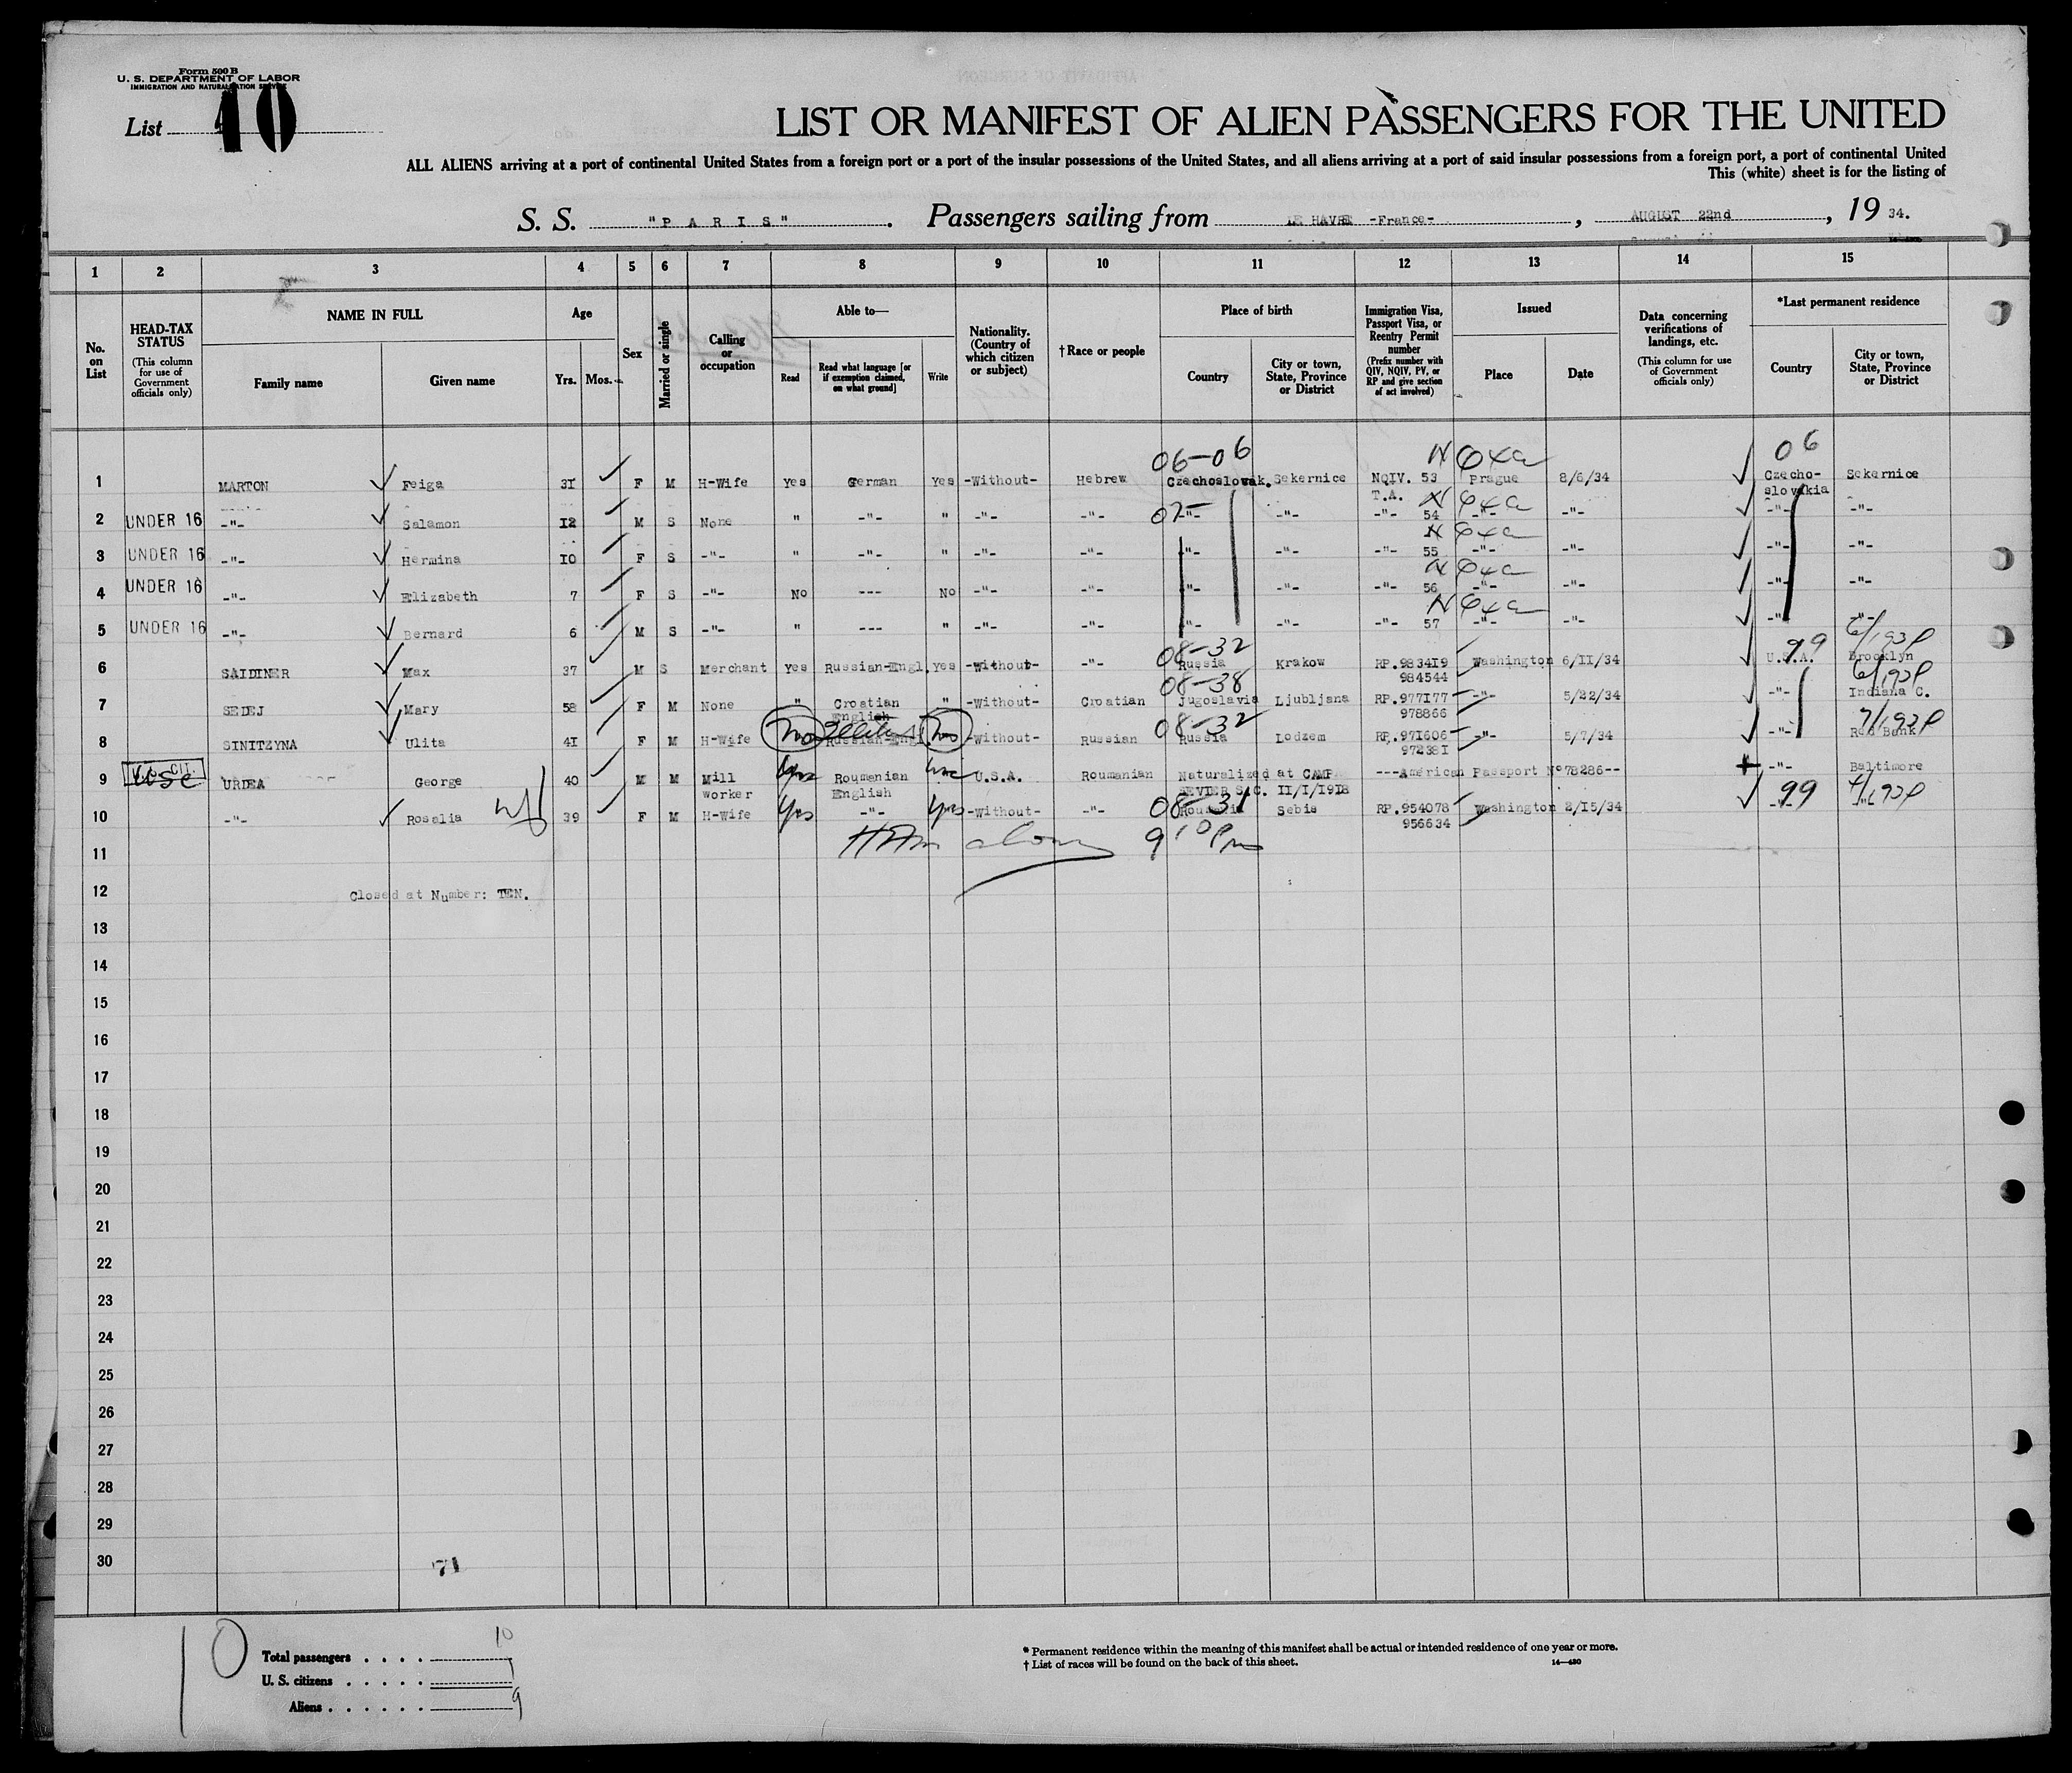 Form 500 B
U. S. DEPARTMENT OF LABOR
IMMIGRATION AND NATURALIZATION SERVICE
List 40
LIST OR MANIFEST OF ALIEN PASSENGERS FOR THE UNITED
ALL ALIENS arriving at a port of continental United States from a foreign port or a port of the insular possessions of the United States, and all aliens arriving at a port of said insular possessions from a foreign port, a port of continental United
This (white) sheet is for the listing of
S. S. "PARIS". Passengers sailing from LE HAVRE -France-, AUGUST 22nd, 19 34.
1 2 3 4 5 6 7 8 9 10 11 12 13 14 15
No. on List
HEAD-TAX STATUS (This column for use of Government officials only)
NAME IN FULL
Family name
Given name
Age
Yrs. Mos.
Sex
Married or single
Calling or occupation
Able to—
Read
Read what language [or if exemption claimed, on what ground]
Write
Nationality. (Country of which citizen or subject)
† Race or people
Place of birth
Country
City or town, State, Province or District
Immigration Visa, Passport Visa, or Reentry Permit number (Prefix number with QIV, NQIV, PV, or RP and give section of act involved)
Issued
Place
Date
Data concerning verifications of landings, etc. (This column for use of Government officials only)
*Last permanent residence
Country
City or town, State, Province or District
06-06 N 04a 06
1 MARTON Feiga 31 F M H-Wife Yes German Yes -Without- Hebrew Czechoslovak. Sekernice NQIV. 53 Prague 8/6/34 Czecho-slovakia Sekernice
T.A. N 04a
2 UNDER 16 -"- Salamon 12 M S None " -"- " -"- -"- -"- -"- -"- 54 -"- -"- -"- -"-
N 04a
3 UNDER 16 -"- Hermina 10 F S -"- " -"- " -"- -"- -"- -"- -"- 55 -"- -"- -"- -"-
N 04a
4 UNDER 16 -"- Elizabeth 7 F S -"- No --- No -"- -"- -"- -"- -"- 56 -"- -"- -"- -"-
N 04a
5 UNDER 16 -"- Bernard 6 M S -"- " --- " -"- -"- -"- -"- -"- 57 -"- -"- -"- -"-
08-32 99
6 SAIDINER Max 37 M S Merchant Yes Russian-Engl. Yes -Without- -"- Russia Krakow RP.983419 Washington 6/11/34 U.S.A. Brooklyn
984544
08-38
7 SEDEJ Mary 58 F M None " Croatian " -Without- Croatian Jugoslavia Ljubljana RP.977177 -"- 5/22/34 -"- Indiana C.
English 978866
08-32
8 SINITZYNA Ulita 41 F M H-Wife No Russian-Engl. No -Without- Russian Russia Lodzem RP.971606 -"- 5/7/34 -"- Red Bank
972381
U.S. CIT.
9 URDEA George 40 M M Mill Yes Roumanian U.S.A. Roumanian Naturalized at CAMP ---American Passport N° 78286-- -"- Baltimore
worker English SEVIER S.C. 11/1/1918
08-31 99
10 -"- Rosalia 39 F M H-Wife Yes -"- Yes -Without- -"- Roumania Sebis RP.954078 Washington 2/15/34 -"- -"-
956634
11
12 Closed at Number: TEN.
13
14
15
16
17
18
19
20
21
22
23
24
25
26
27
28
29
30
71
10
Total passengers . . . . 10
U. S. citizens . . . . . 1
Aliens . . . . . . 9
* Permanent residence within the meaning of this manifest shall be actual or intended residence of one year or more.
† List of races will be found on the back of this sheet. 14—430